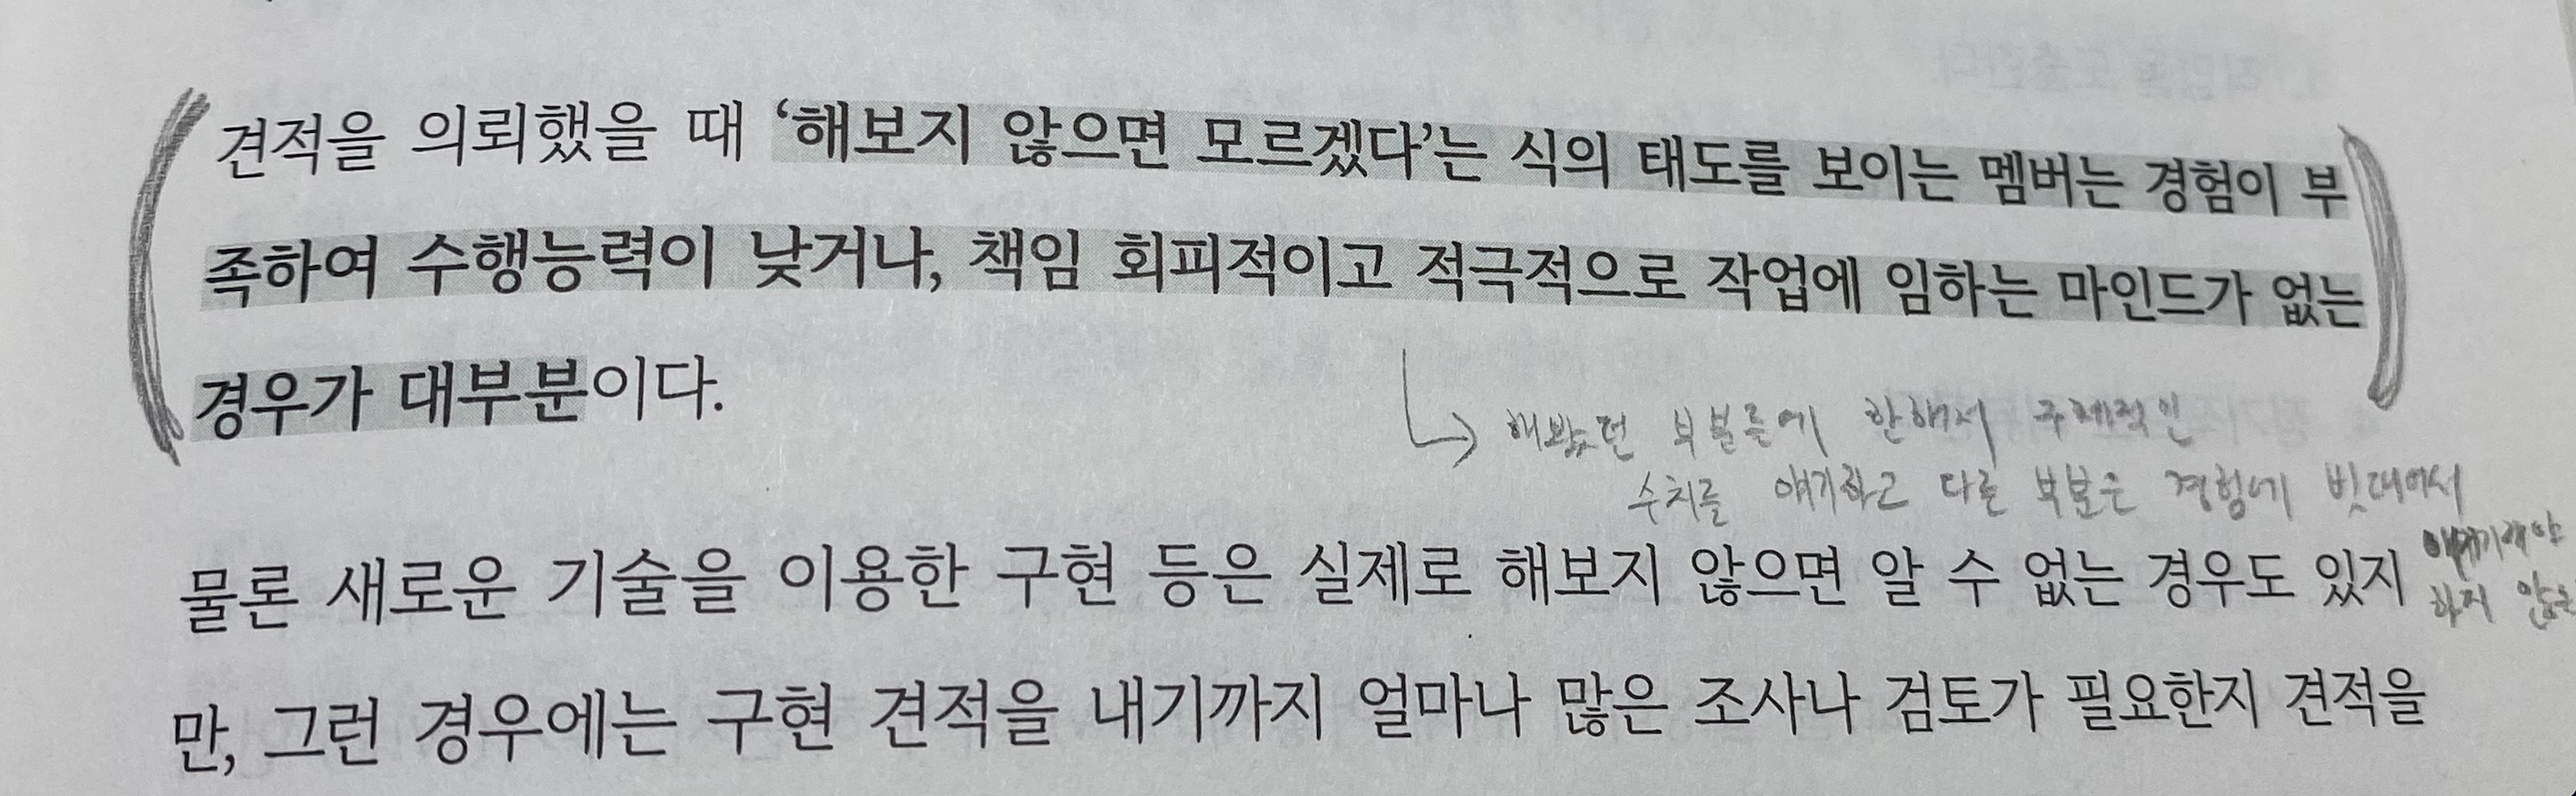 견적을 의뢰했을 때 ‘해보지 않으면 모르겠다’는 식의 태도를 보이는 멤버는 경험이 부
족하여 수행능력이 낮거나, 책임 회피적이고 적극적으로 작업에 임하는 마인드가 없는
경우가 대부분이다.
해봤던 부분들에 한해서 구체적인
수치를 얘기하고 다른 부분은 경험에 빗대어서
얘기해야
하지 않는
물론 새로운 기술을 이용한 구현 등은 실제로 해보지 않으면 알 수 없는 경우도 있지
만, 그런 경우에는 구현 견적을 내기까지 얼마나 많은 조사나 검토가 필요한지 견적을